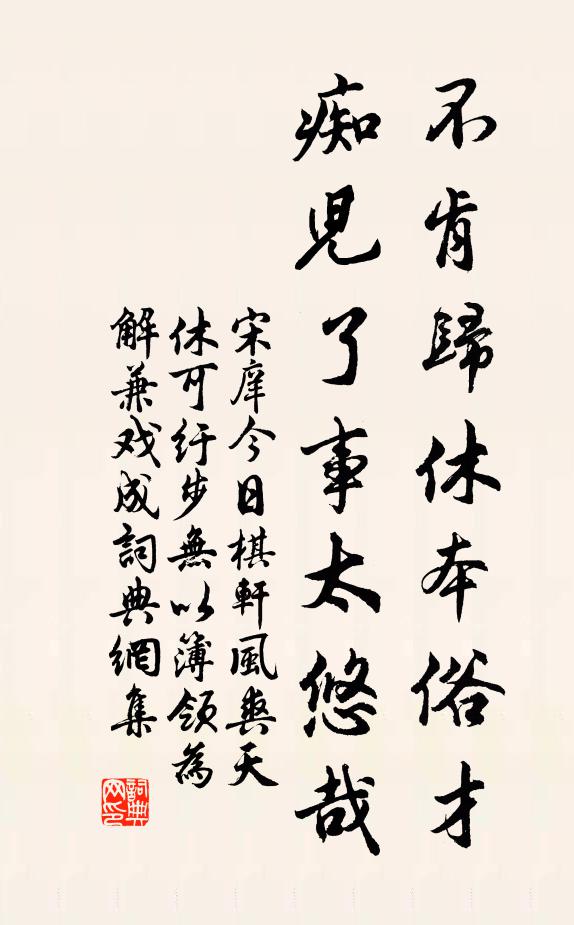 不肯歸休本俗才
痴児了事太悠哉
宋庠今日棋軒風爽天
休可紆步無以簿領為
解兼戏成詞典網集
詞典网印